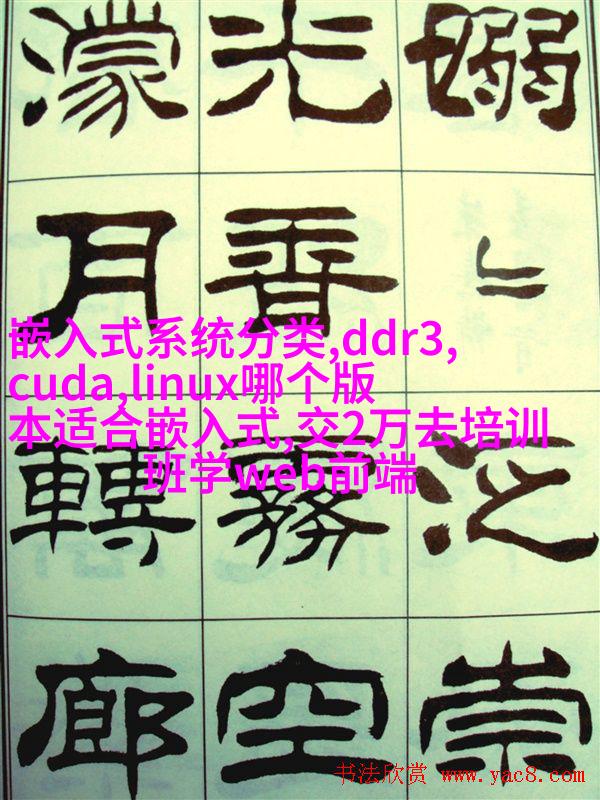 嫋〻泛崇
光香霧空
濛月轉廊
嵌入式系统分类,ddr3,
cuda,linux哪个版
本适合嵌入式,交2万去培训
班学web前端
书法欣赏 www.yac8.com